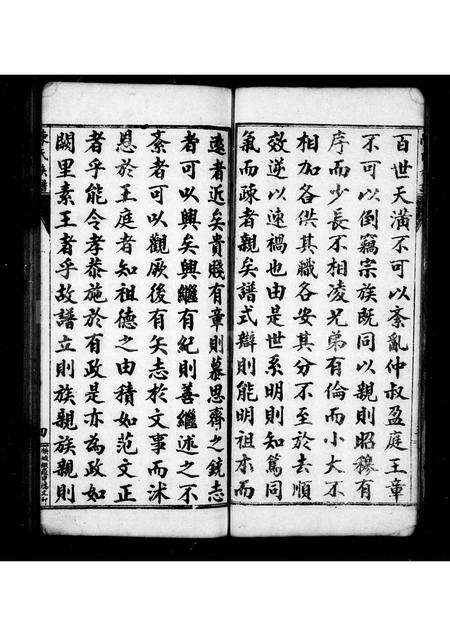 百世天潢不可以紊亂仲叔盈庭王章
不可以倒竊宗族既同以親則昭穆有
序而少長不相凌兄弟有倫而小大不
相加各供其職各安其分不至於去順
效逆以速禍也由是世系明則知篤同
氣而疎者親矣譜式辯則能明祖亦而
遠者近矣貴賤有章則慕思齊之銳志
者可以興矣興繼有紀則善繼述之不
紊者可以觀厥後有矢志於文事而沭
恩於王庭者知祖德之由積如范文正
者乎能令孝恭施於有政是亦為政如
闕里素王者乎故譜立則族親族親則
陳氏族譜